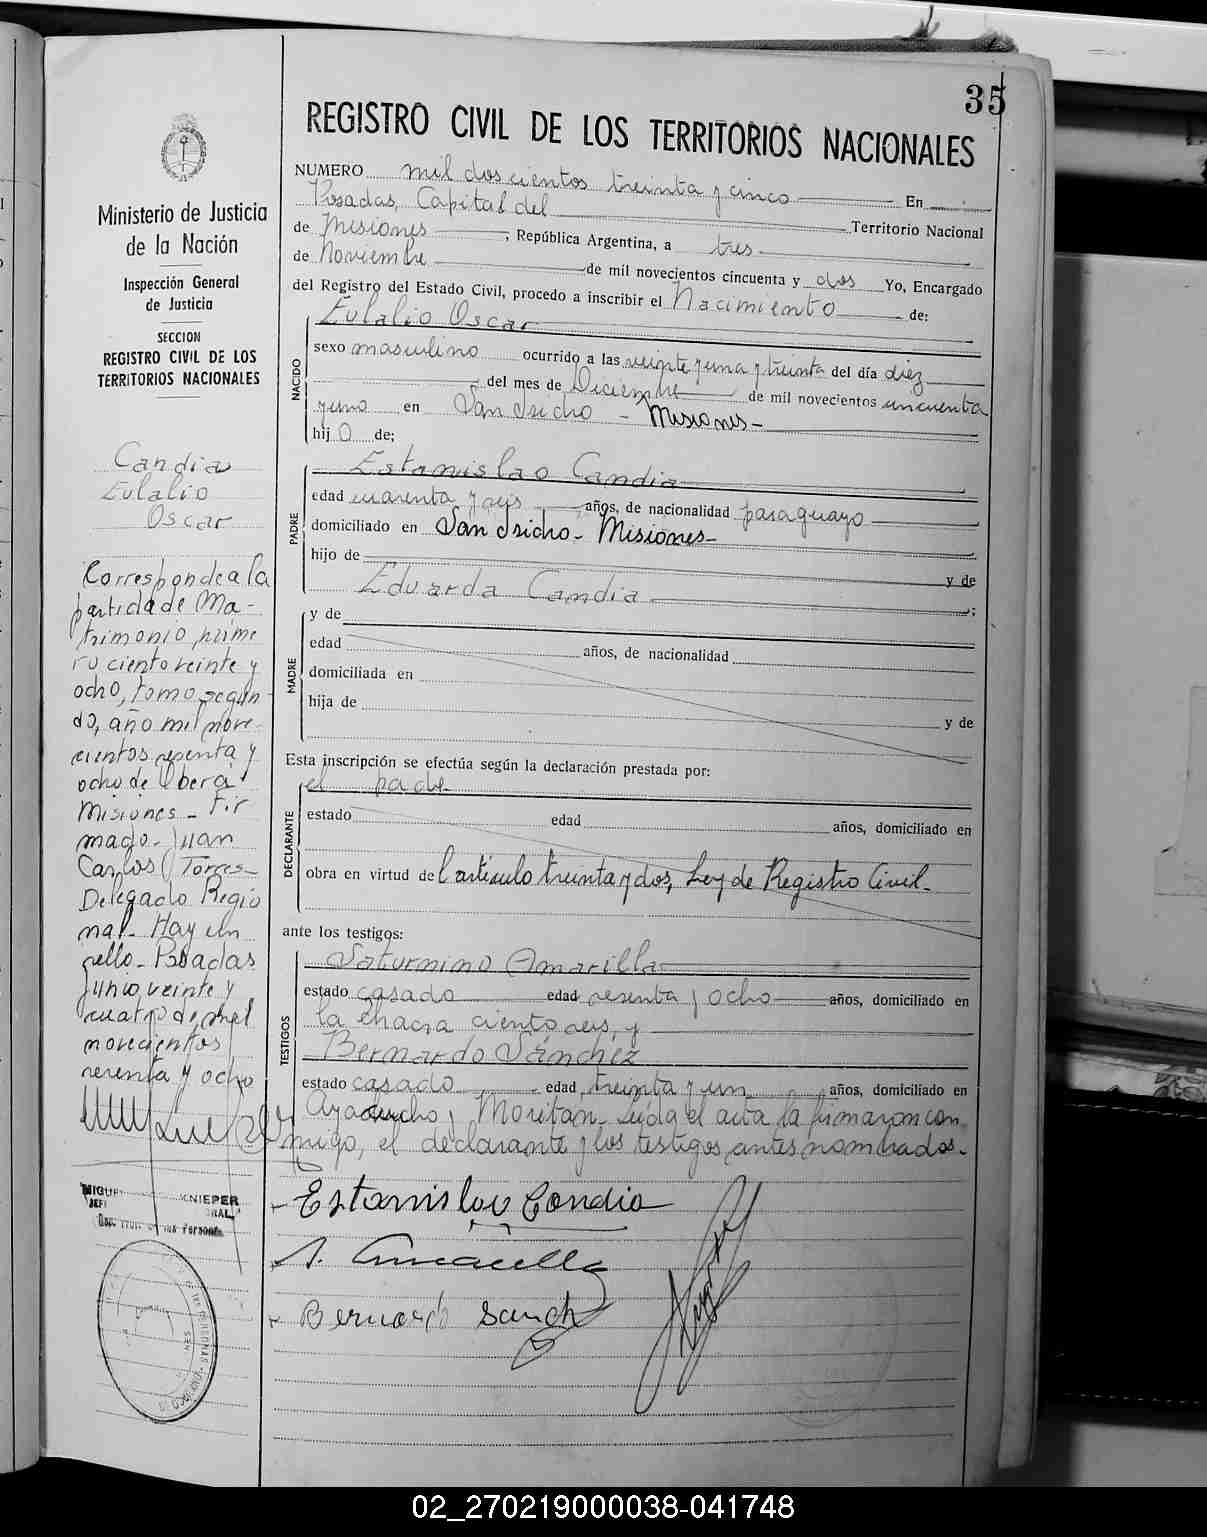 35
REGISTRO CIVIL DE LOS TERRITORIOS NACIONALES
NUMERO mil doscientos treinta y cinco En
Posadas, Capital del Territorio Nacional
de Misiones, República Argentina, a tres
de Noviembre de mil novecientos cincuenta y dos Yo, Encargado
del Registro del Estado Civil, procedo a inscribir el Nacimiento de:
NACIDO
Eulalio Oscar
sexo masculino ocurrido a las veinte y una y treinta del día diez
del mes de Diciembre de mil novecientos cincuenta
y uno en San Isidro - Misiones-
hijo de;
PADRE
Estanislao Candia
edad cuarenta y seis años, de nacionalidad paraguayo
domiciliado en San Isidro- Misiones-
hijo de y de
Eduarda Candia;
MADRE
y de
edad años, de nacionalidad
domiciliada en
hija de y de
Esta inscripción se efectúa según la declaración prestada por:
DECLARANTE
el padre
estado edad años, domiciliado en
obra en virtud del artículo treinta y dos, Ley de Registro Civil-
ante los testigos:
TESTIGOS
Saturnino Amarilla
estado casado edad sesenta y ocho años, domiciliado en
la chacra ciento seis, y
Bernardo Sánchez
estado casado edad treinta y un años, domiciliado en
Ayacucho y Moritan- Leída el acta la firmaron con
migo, el declarante y los testigos antes nombrados-
Estanislao Candia
A. Amarilla
Bernardo Sanch
Ministerio de Justicia
de la Nación
Inspección General
de Justicia
SECCION
REGISTRO CIVIL DE LOS
TERRITORIOS NACIONALES
Candia
Eulalio
Oscar
Corresponde a la
partida de Ma-
trimonio, núme
ro ciento veinte y
ocho, tomo segun
do, año mil nove-
cientos setenta y
ocho de Oberá
Misiones- Fir
mado- Juan
Carlos Torres-
Delegado Regio
nal- Hay un
sello- Posadas
Junio, veinte y
cuatro de mil
novecientos
setenta y ocho
KNIEPER
02_270219000038-041748